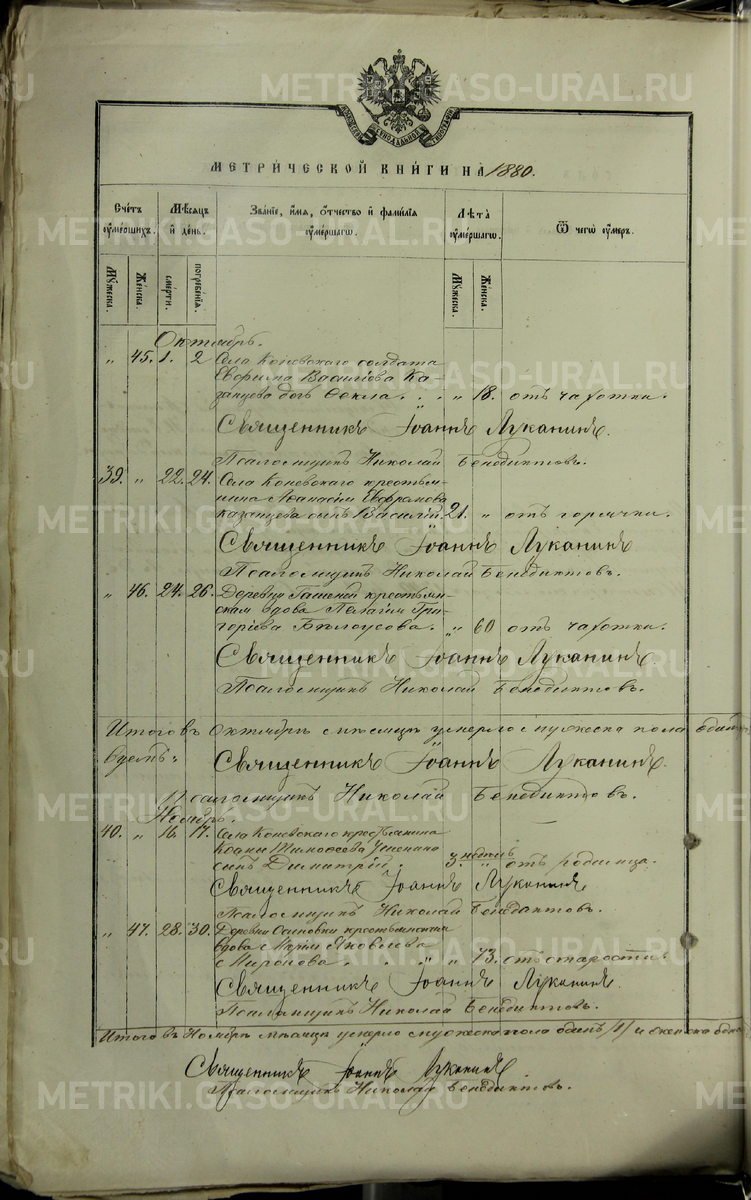 МЕТРИЧЕСКОЙ КНИГИ НА 1880.
Счетъ умершихъ.
Мѣсяцъ и день.
Званіе, имя, отчество и фамилія умершаго.
Лѣта умершаго.
Ѿ чегѡ умеръ.
Мужеска.
Женска.
смерти.
погребенія.
Мужеска.
Женска.
Октябрь.
" 45. 1. 2 Села Коневскаго солдата
Ка-
занцева дочь Ѳекла . . . " 18. отъ чахотки.
Священникъ Іоаннъ Луканинъ.
Псаломщикъ Николай Бенедиктовъ.
39. " 22. 24. Села Коневскаго крестья-
нина
Казанцева сынъ Василій 21. " отъ горячки.
Священникъ Іоаннъ Луканинъ
Псаломщикъ Николай Бенедиктовъ.
" 46. 24. 26. Деревни крестьян-
ская вдова Пелагія Гри-
горіева Бѣлоусова. " 60 отъ чахотки.
Священникъ Іоаннъ Луканинъ.
Псаломщикъ Николай Бенедиктовъ.
Итого въ Октябрѣ мѣсяцѣ умерло мужеска пола
Священникъ Іоаннъ Луканинъ.
Псаломщикъ Николай Бенедиктовъ.
Ноябрь.
40. " 16. 17. Села Коневскаго крестьянина
Тимоѳеева
сынъ Димитрій. 3. недѣль " отъ родимца.
Священникъ Іоаннъ Луканинъ
Псаломщикъ Николай Бенедиктовъ.
" 47. 28. 30. Деревни Осиновки крестьянская
вдова Марія Яковлева
Миронова. . . " 73. отъ старости.
Священникъ Іоаннъ Луканинъ.
Псаломщикъ Николай Бенедиктовъ.
Итого въ Ноябрѣ мѣсяцѣ умерло мужеска пола одинъ /1/ и женска одна
Священникъ Іоаннъ Луканинъ
Псаломщикъ Николай Бенедиктовъ.
METRIKI.GASO-URAL.RU